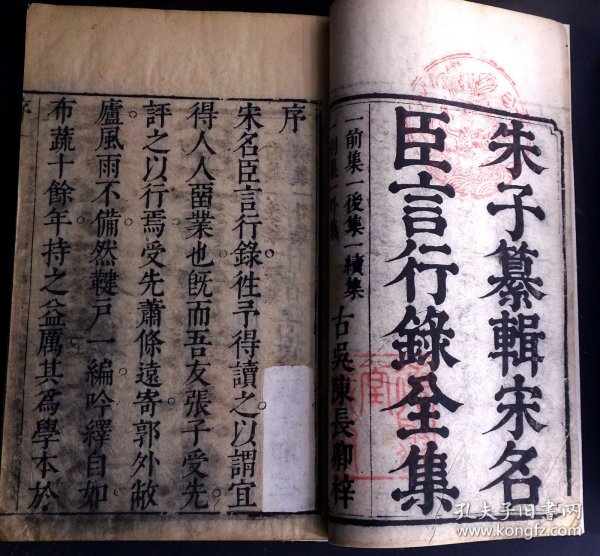 朱子纂輯宋名
臣言行錄全集
一前集一後集一續集
別集一外集
古吳陳長卿梓
序
宋名臣言行錄徃予得讀之以謂宜
得人人畱業也旣而吾友張子受先
評之以行焉受先蕭條遠寄郭外敝
廬風雨不備然鍵戶一編吟繹自如
布蔬十餘年持之益厲其為學本於
序
孔夫子旧書网
www.kongfz.com